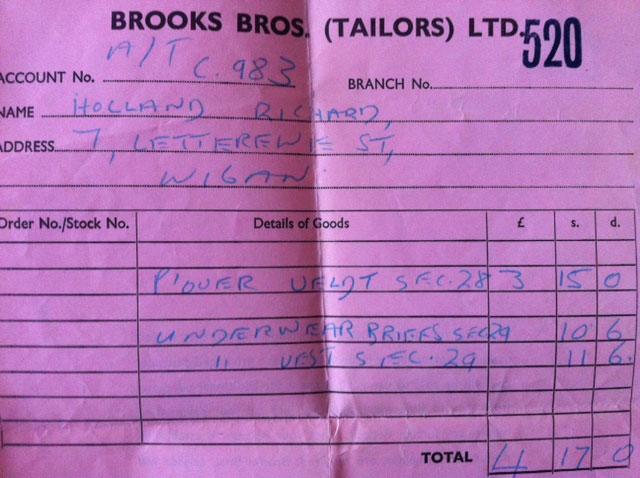 BROOKS BROS. (TAILORS) LTD. 520
A/T
ACCOUNT No. C.983 BRANCH No.
NAME HOLLAND RICHARD,
ADDRESS 7, LETTEREWE ST,
WIGAN.
Order No./Stock No. Details of Goods £ s. d.
P'OVER VELDT SEC.28 3 15 0
UNDERWEAR BRIEFS SEC29 10 6
" VEST SEC.29 11 6.
TOTAL 4 17 0